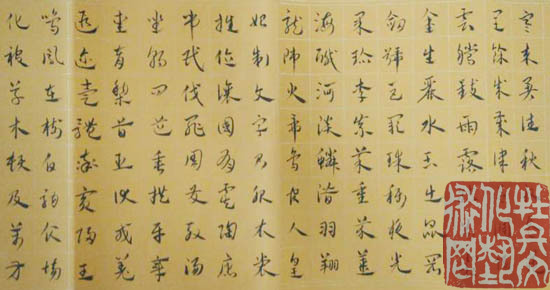 寒来暑往秋
閏餘成歲律
雲騰致雨露
金生麗水玉出崑岡
劍號巨闕珠稱夜光
果珍李柰菜重芥薑
海鹹河淡鱗潛羽翔
龍師火帝鳥官人皇
始制文字乃服衣裳
推位讓國有虞陶唐
弔民伐罪周發殷湯
坐朝問道垂拱平章
愛育黎首臣伏戎羌
遐邇壹體率賓歸王
鳴鳳在樹白駒食場
化被草木賴及萬方